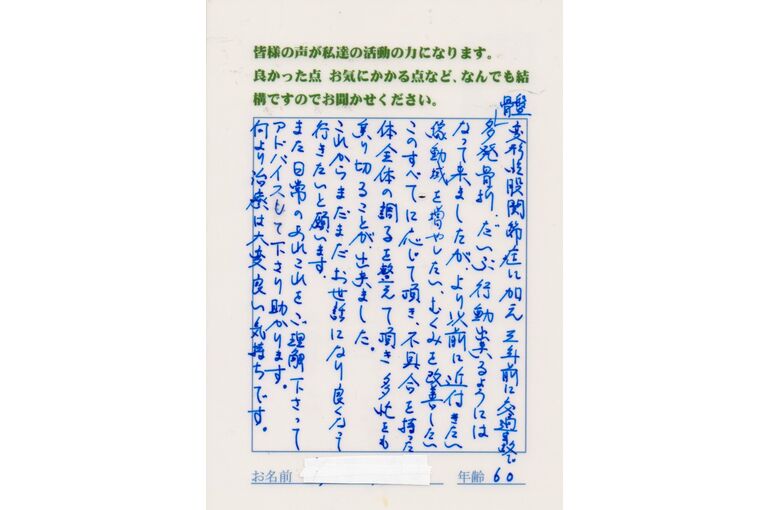 皆様の声が私達の活動の力になります。
良かった点 お気にかかる点など、なんでも結
構ですのでお聞かせください。
変形性股関節症に加え三年前に交通事故で
骨盤多発骨折、だいぶ行動出来るようには
なって来ましたが、より以前に近付きたい
稼動域を増やしたい、むくみを改善したい
このすべてに応じて頂き、不具合を持った
体全体の調子を整えて頂き多忙をも
乗り切ることが、出来ました。
これからまだまだお世話になり良くなって
行きたいと願います。
また日常のあれこれをご理解下さって
アドバイスして下さり助かります。
何より治療は大変良い気持ちです。
お名前
年齢 60